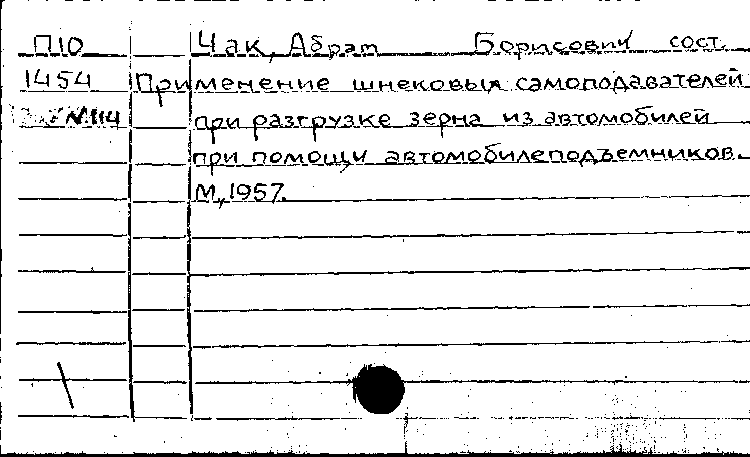 П10 Чак, Абрам Борисович сост.
1454 Применение шнековых самоподавателей
№114 при разгрузке зерна из автомобилей
при помощи автомобилеподъемников.
М., 1957.